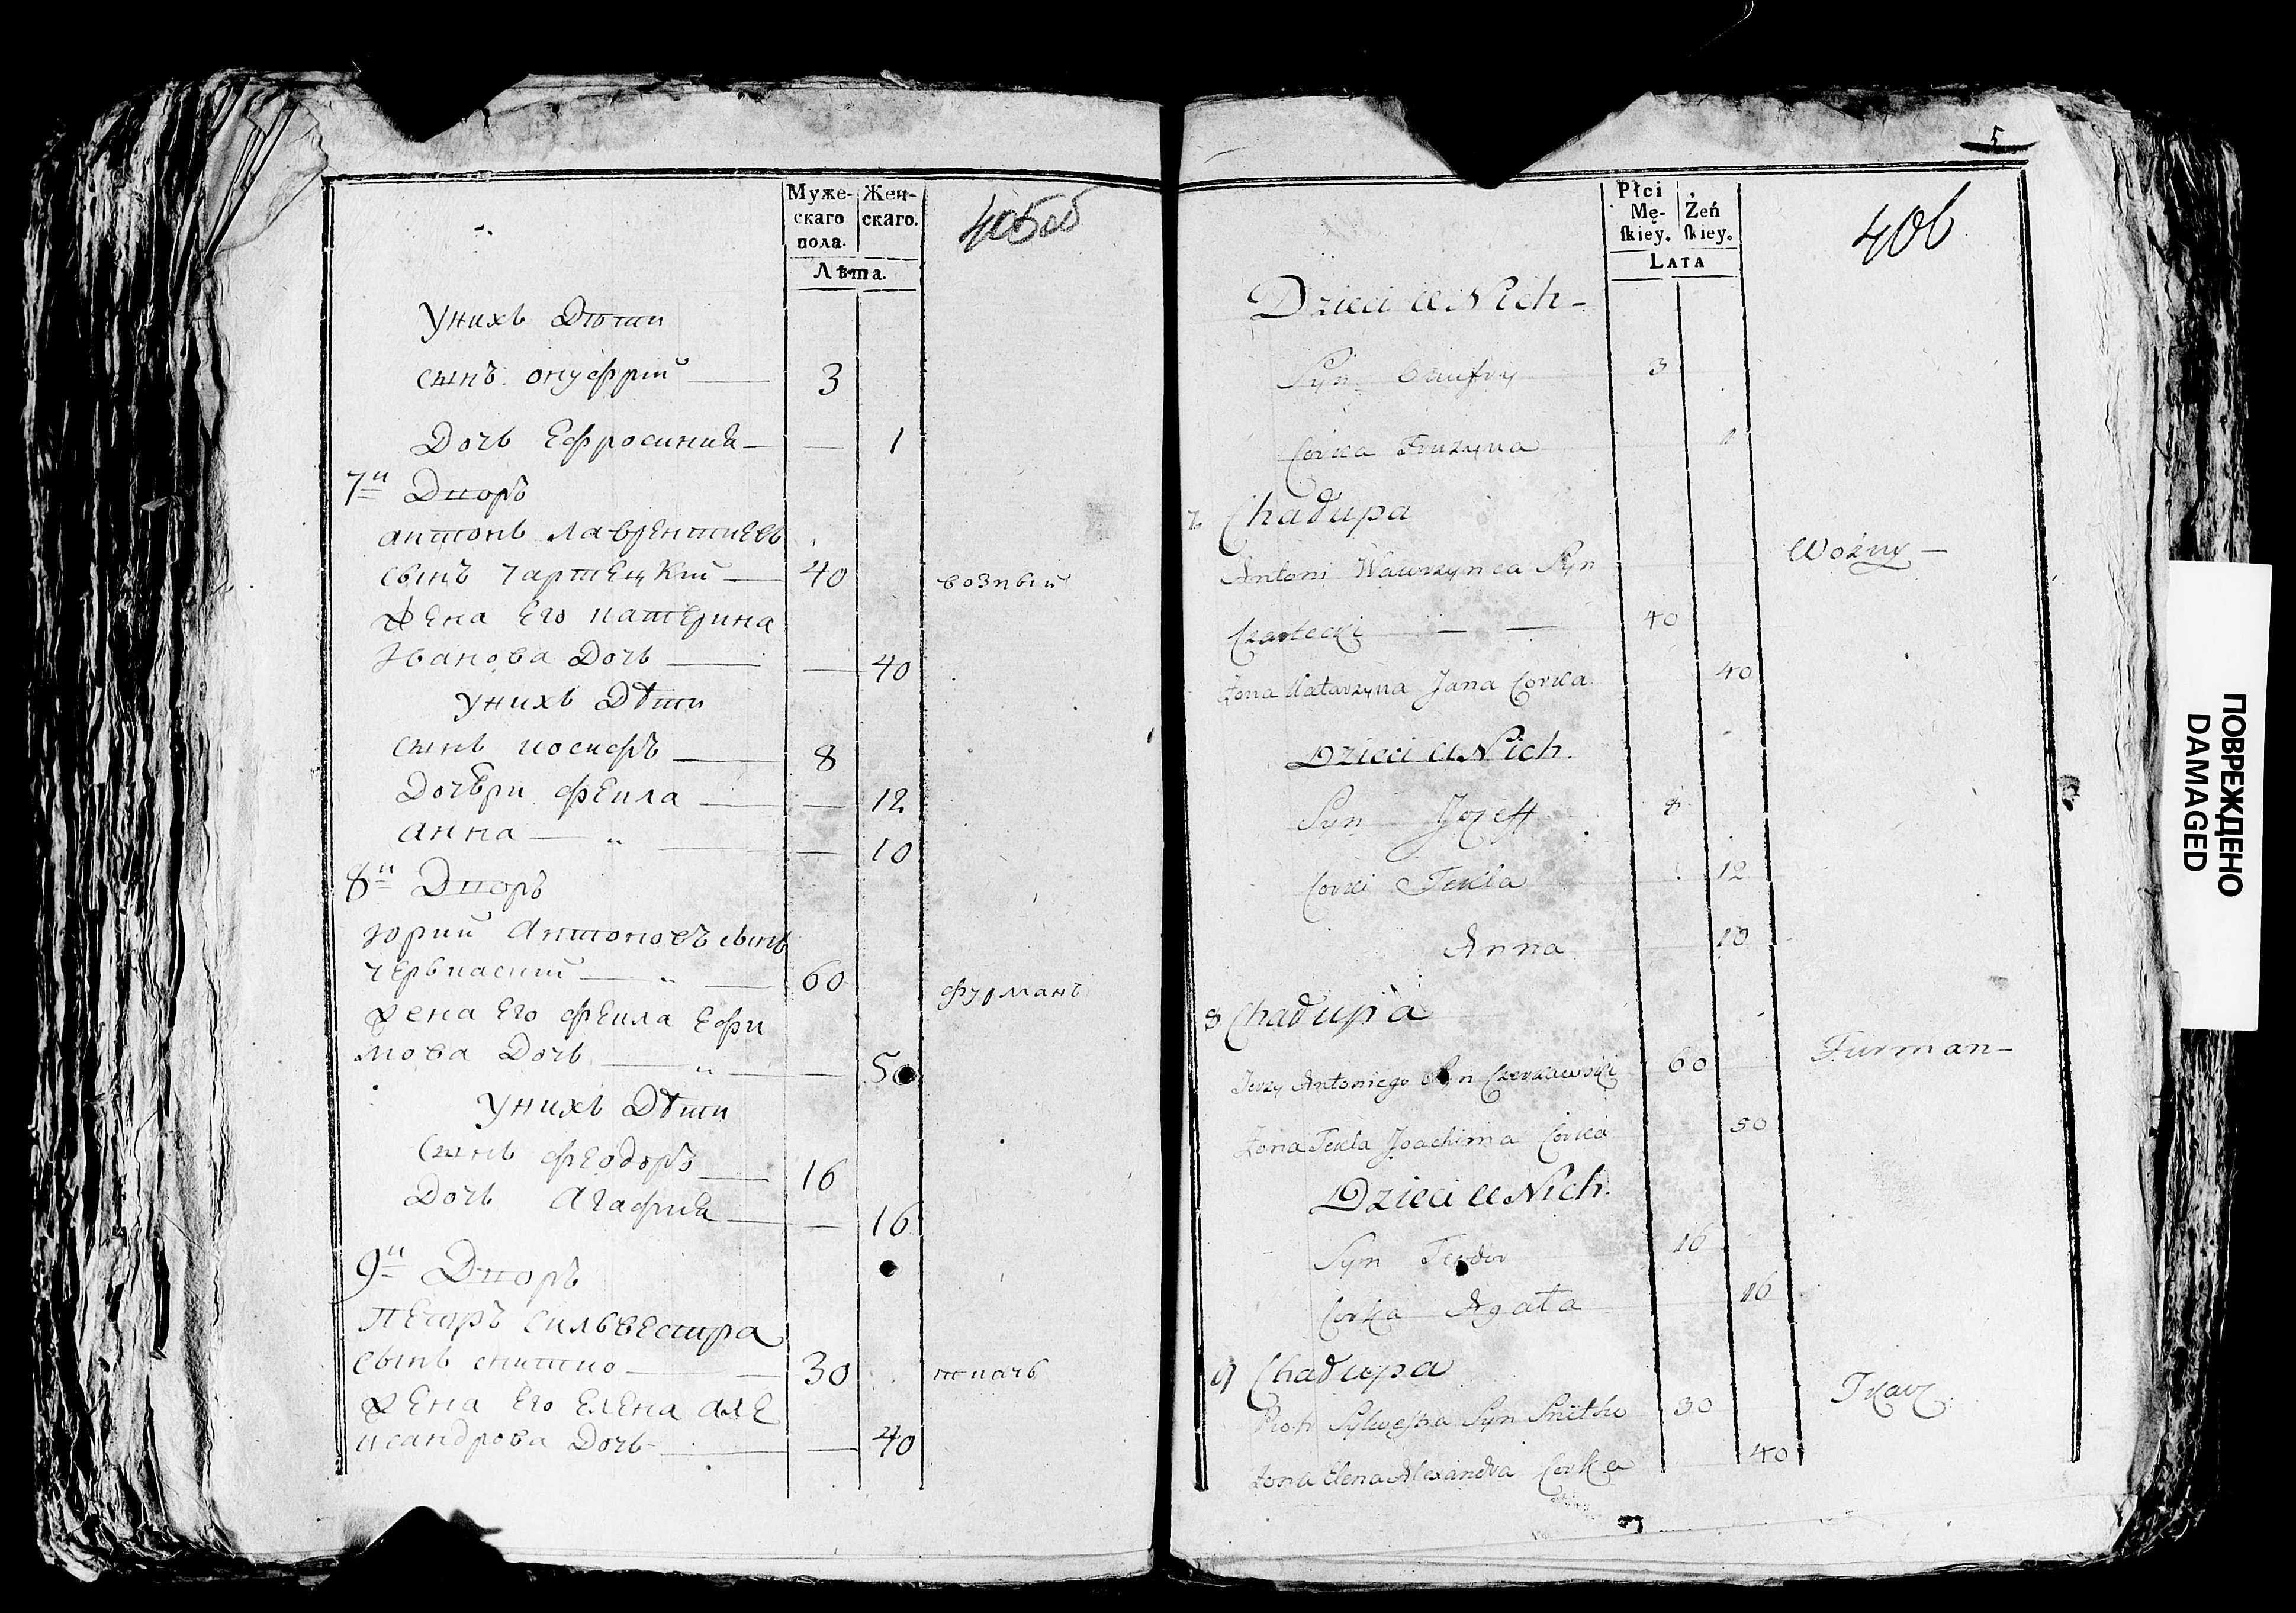 Муже-
скаго
пола.
Жен-
скаго.
Лѣта.
405об
Унихъ Дѣти
сынъ онуфрій — 3
Дочь Ефросинія — — 1
7й Дворъ
антонъ лаврентиевъ
сынъ чартецкий — 40 возный
жена его катерина
Иванова Дочь — — 40
Унихъ Дѣти
сынъ иосифъ — 8
Дочери фекла — — 12
анна — „ — — 10
8й Дворъ
юрий антоновъ сынъ
черкаский — „ — 60 фурманъ
жена его фекла Ефи
мова Дочь — „ — — 50
Унихъ Дѣти
сынъ феодоръ — 16
Дочь агафия — — 16
9й Дворъ
петръ силвестра
сынъ снитко — 30 ткачь
жена его елена але
ксандрова Дочь — — 40
5
Płci
Mę-
ſkiey.
Żeń
ſkiey.
LATA
406
Dzieci u Nich —
Syn Onufry 3
Corka Fruzyna 1
7 Chałupa
Antoni Wawrzynca Syn Woźny —
Czartecki — — 40
Zona Katarzyna Jana Corka 40
Dzieci u Nich.
Syn Jozeff 8
Corki Tekla 12
Anna 10
8 Chałupa
Jerzy Antoniego Syn Czerkawski 60 Furman —
Zona Tekla Joachima Corka 50
Dzieci u Nich.
Syn Teodor 16
Corka Agata 16
9 Chałupa
Piotr Sylwestra Syn Snitko 30 Tkacz
Zona Elena Alexandra Corka 40
ПОВРЕЖДЕНО
DAMAGED